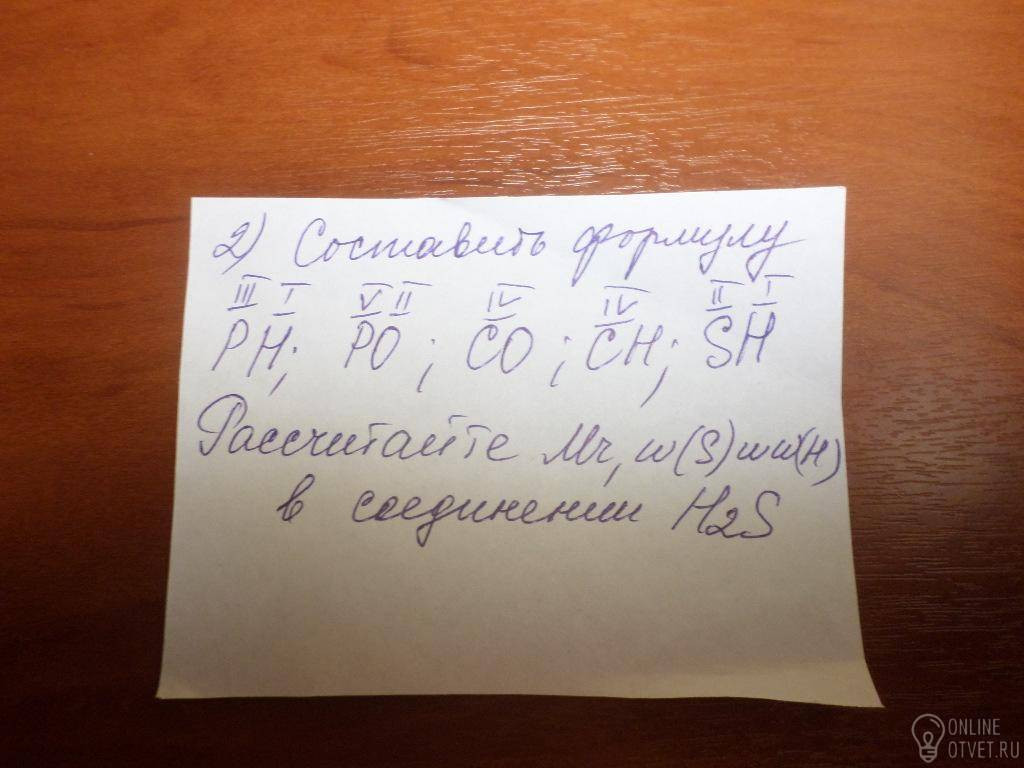 2) Составить формулу
III I V II IV IV II I
PH; PO; CO; CH; SH
Рассчитайте Mr, w(S) и w(H)
в соединении H₂S
ONLINE
OTVET.RU